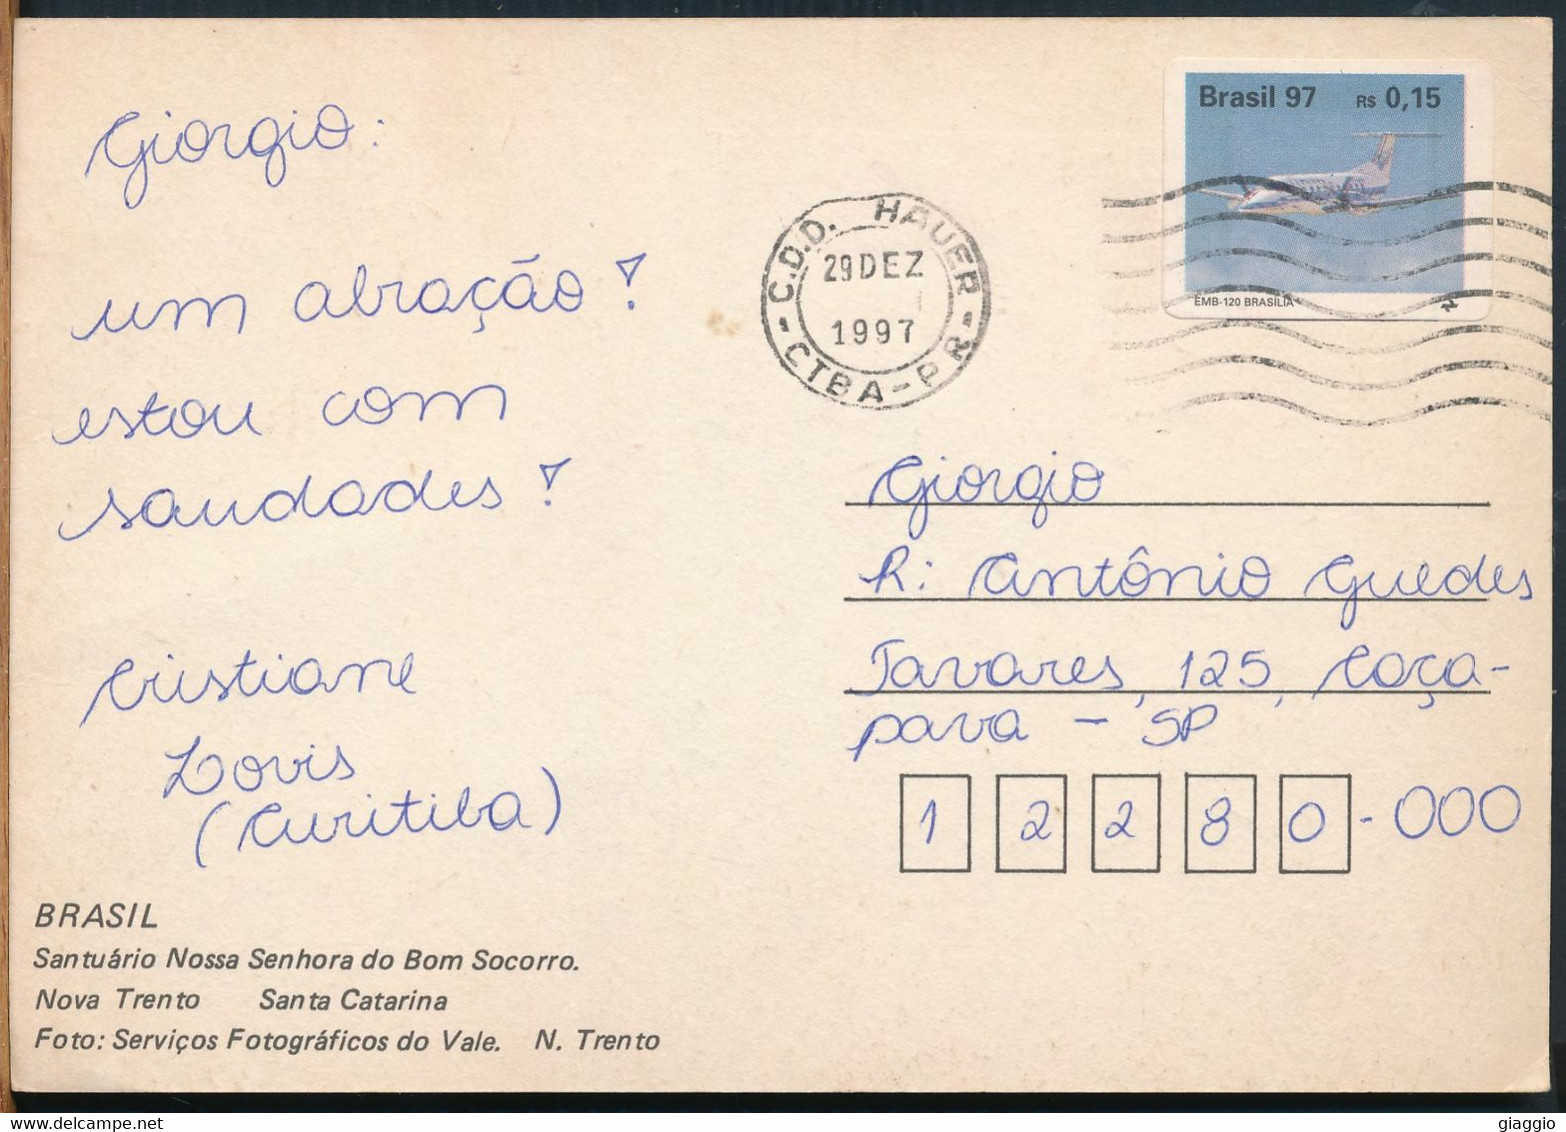 Giorgio:
um abração!
estou com
saudades!
Cristiane
Lovis
(Curitiba)
BRASIL
Santuário Nossa Senhora do Bom Socorro.
Nova Trento Santa Catarina
Foto: Serviços Fotográficos do Vale. N. Trento
Brasil 97 R$ 0,15
EMB-120 BRASILIA
C.D.D. HAUER
29 DEZ
1997
-CTBA-PR-
Giorgio
R: Antônio Guedes
Tavares, 125, Caça-
pava - SP
12280-000
giaggio